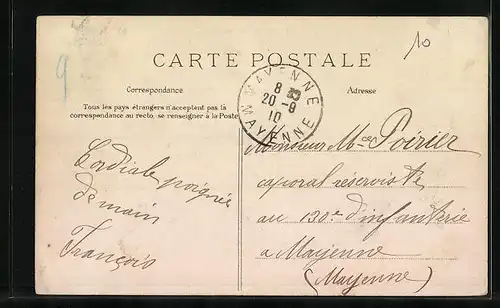 10
9
CARTE POSTALE
Correspondance
Adresse
Tous les pays étrangers n'acceptent pas la
correspondance au recto, se renseigner à la Poste
MAYENNE
8
20-8
10
MAYENNE
Cordiale poignée
de main
François
Monsieur Mce Poirier
caporal réserviste
au 130e d'infanterie
a Mayenne
(Mayenne)